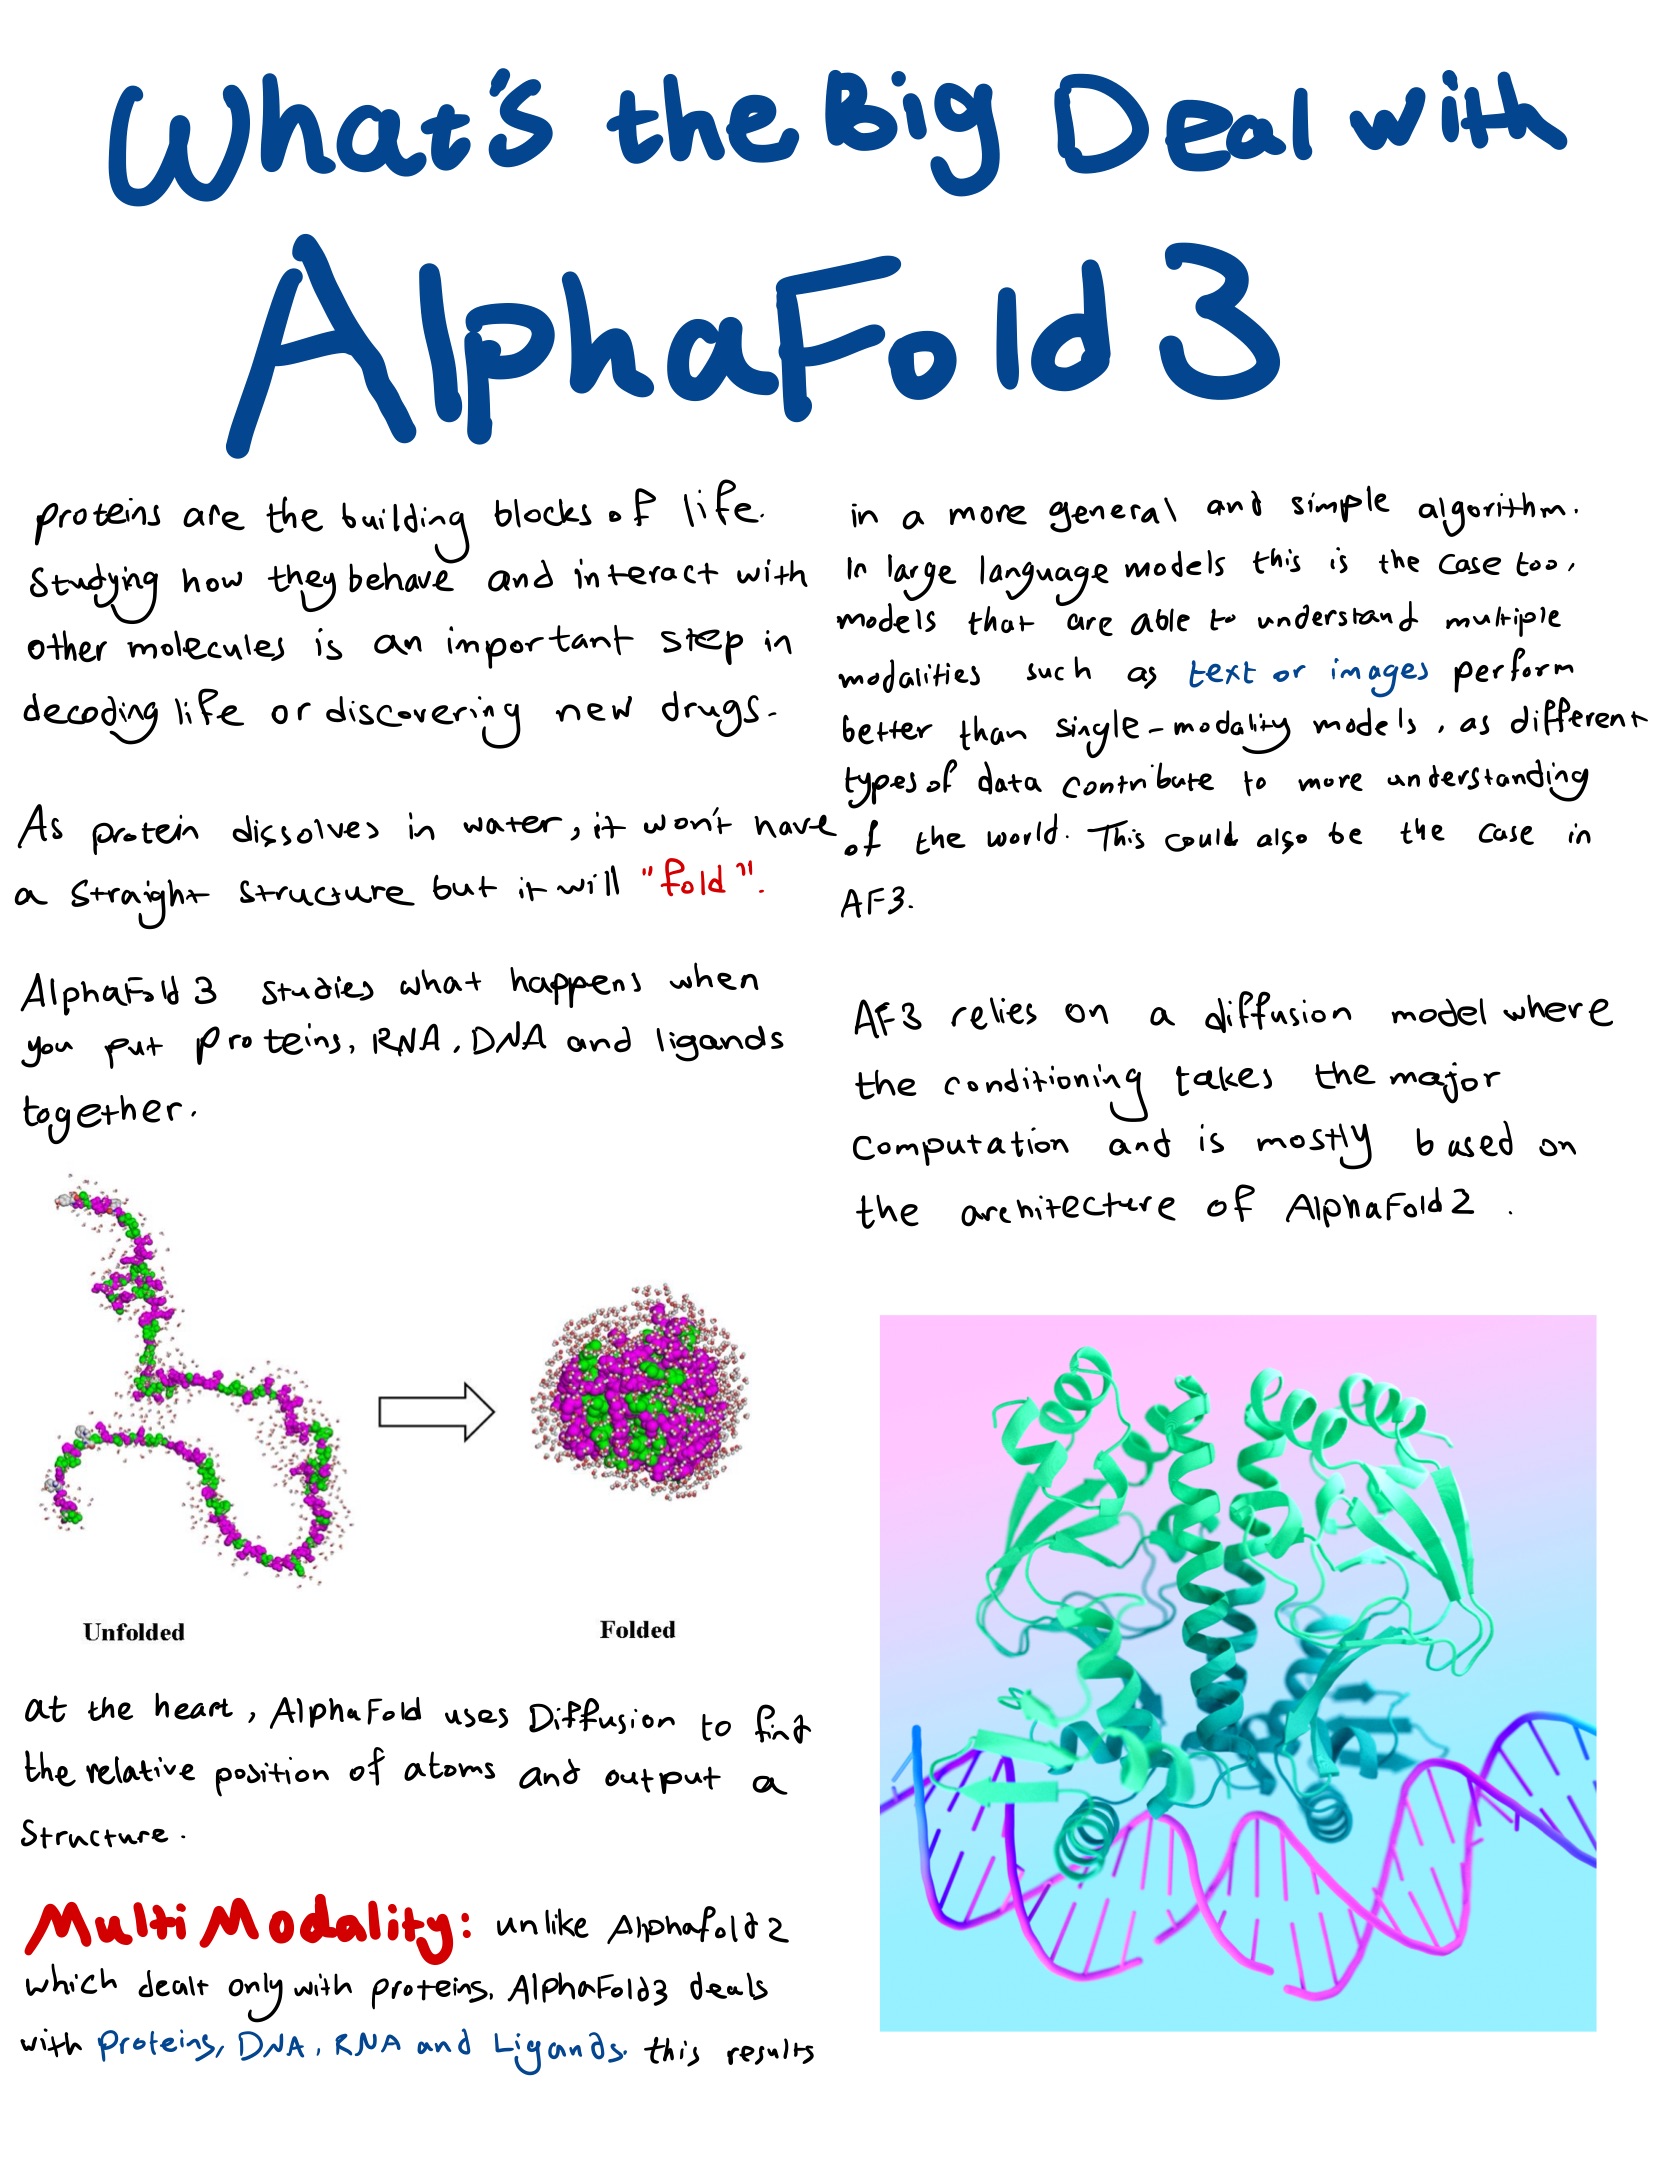 What's the Big Deal with
AlphaFold 3
proteins are the building blocks of life.
Studying how they behave and interact with
other molecules is an important step in
decoding life or discovering new drugs.
As protein dissolves in water, it won't have
a straight structure but it will "fold".
AlphaFold 3 studies what happens when
you put proteins, RNA, DNA and ligands
together.
Unfolded
Folded
at the heart, AlphaFold uses Diffusion to find
the relative position of atoms and output a
structure.
Multi Modality: unlike Alphafold 2
which dealt only with proteins, AlphaFold3 deals
with proteins, DNA, RNA and Ligands. this results
in a more general and simple algorithm.
In large language models this is the case too,
models that are able to understand multiple
modalities such as text or images perform
better than single-modality models, as different
types of data contribute to more understanding
of the world. This could also be the case in
AF3.
AF3 relies on a diffusion model where
the conditioning takes the major
computation and is mostly based on
the architecture of AlphaFold2.